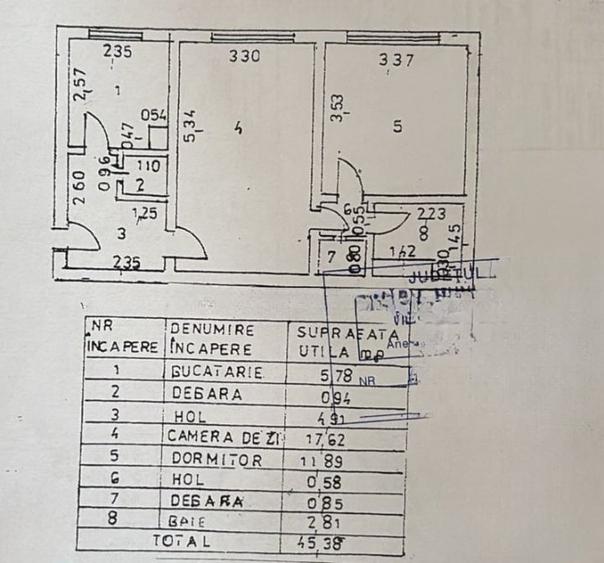 235
330
337
2,57
1
054
0,47
5,34
4
3,53
5
2 60
0 96
110
2
1,25
3
235
6
0,55
223
8
1,45
7
0,80
1,42
0,30
JUDETUL
NR
ÎNCAPERE
DENUMIRE
ÎNCAPERE
SUPRAFATA
UTILA mp
Ane
NR
1 BUCATARIE 5,78
2 DEBARA 0,94
3 HOL 4,91
4 CAMERA DE ZI 17,62
5 DORMITOR 11,89
6 HOL 0,58
7 DEBARA 0,85
8 BAIE 2,81
TOTAL 45,38